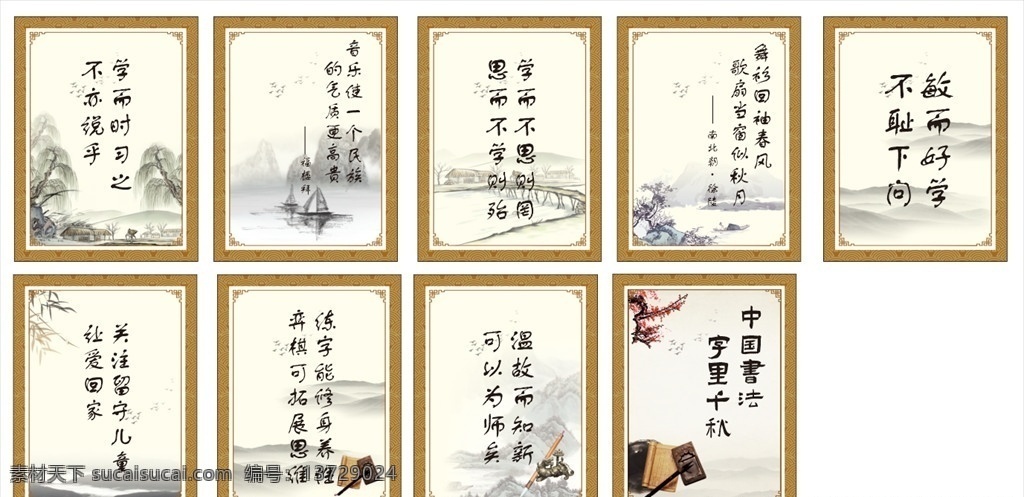 学而时习之
不亦说乎
音乐使一个民族
的气质更高贵
学而不思则罔
思而不学则殆
舞衫回袖春风
歌扇当窗似秋月
——南北朝·徐陵
敏而好学
不耻下问
关注留守儿童
让爱回家
练字能修身养性
弈棋可拓展思维
温故而知新
可以为师矣
中国书法
字里千秋
素材天下 sucaisucai.com 编号：13729024